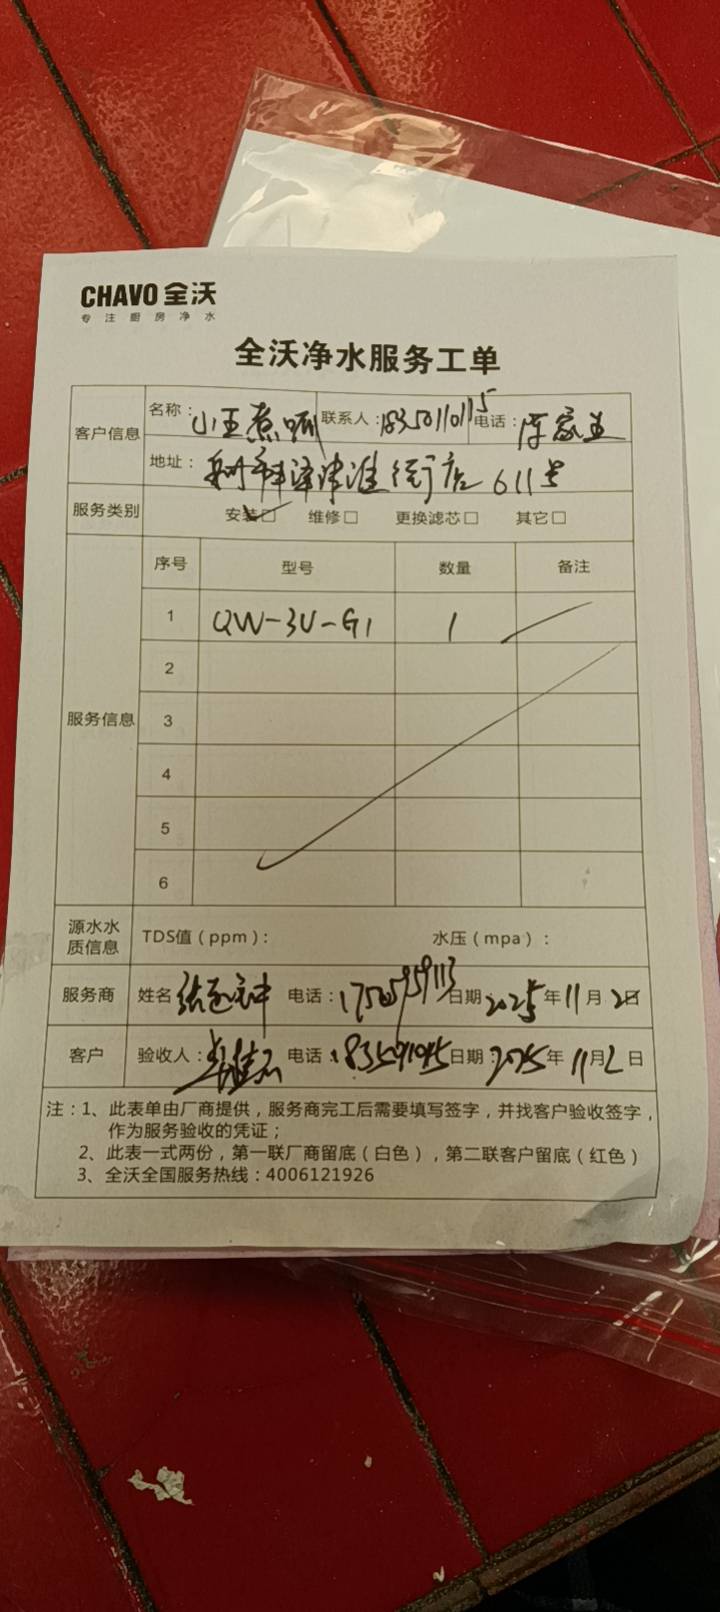 CHAVO 全沃
专注厨房净水
全沃净水服务工单
客户信息 名称：小王煮呱 联系人：18350110115 电话：陈家益
地址： 街店611号
服务类别 安装☑ 维修□ 更换滤芯□ 其它□
服务信息 序号 型号 数量 备注
1 QW-3U-G1 1
2
3
4
5
6
源水水质信息 TDS值（ppm）： 水压（mpa）：
服务商 姓名 电话：17505959113 日期 2025年11月2日
客户 验收人： 电话： 日期：2025年11月2日
注：1、此表单由厂商提供，服务商完工后需要填写签字，并找客户验收签字，
作为服务验收的凭证；
2、此表一式两份，第一联厂商留底（白色），第二联客户留底（红色）
3、全沃全国服务热线：4006121926